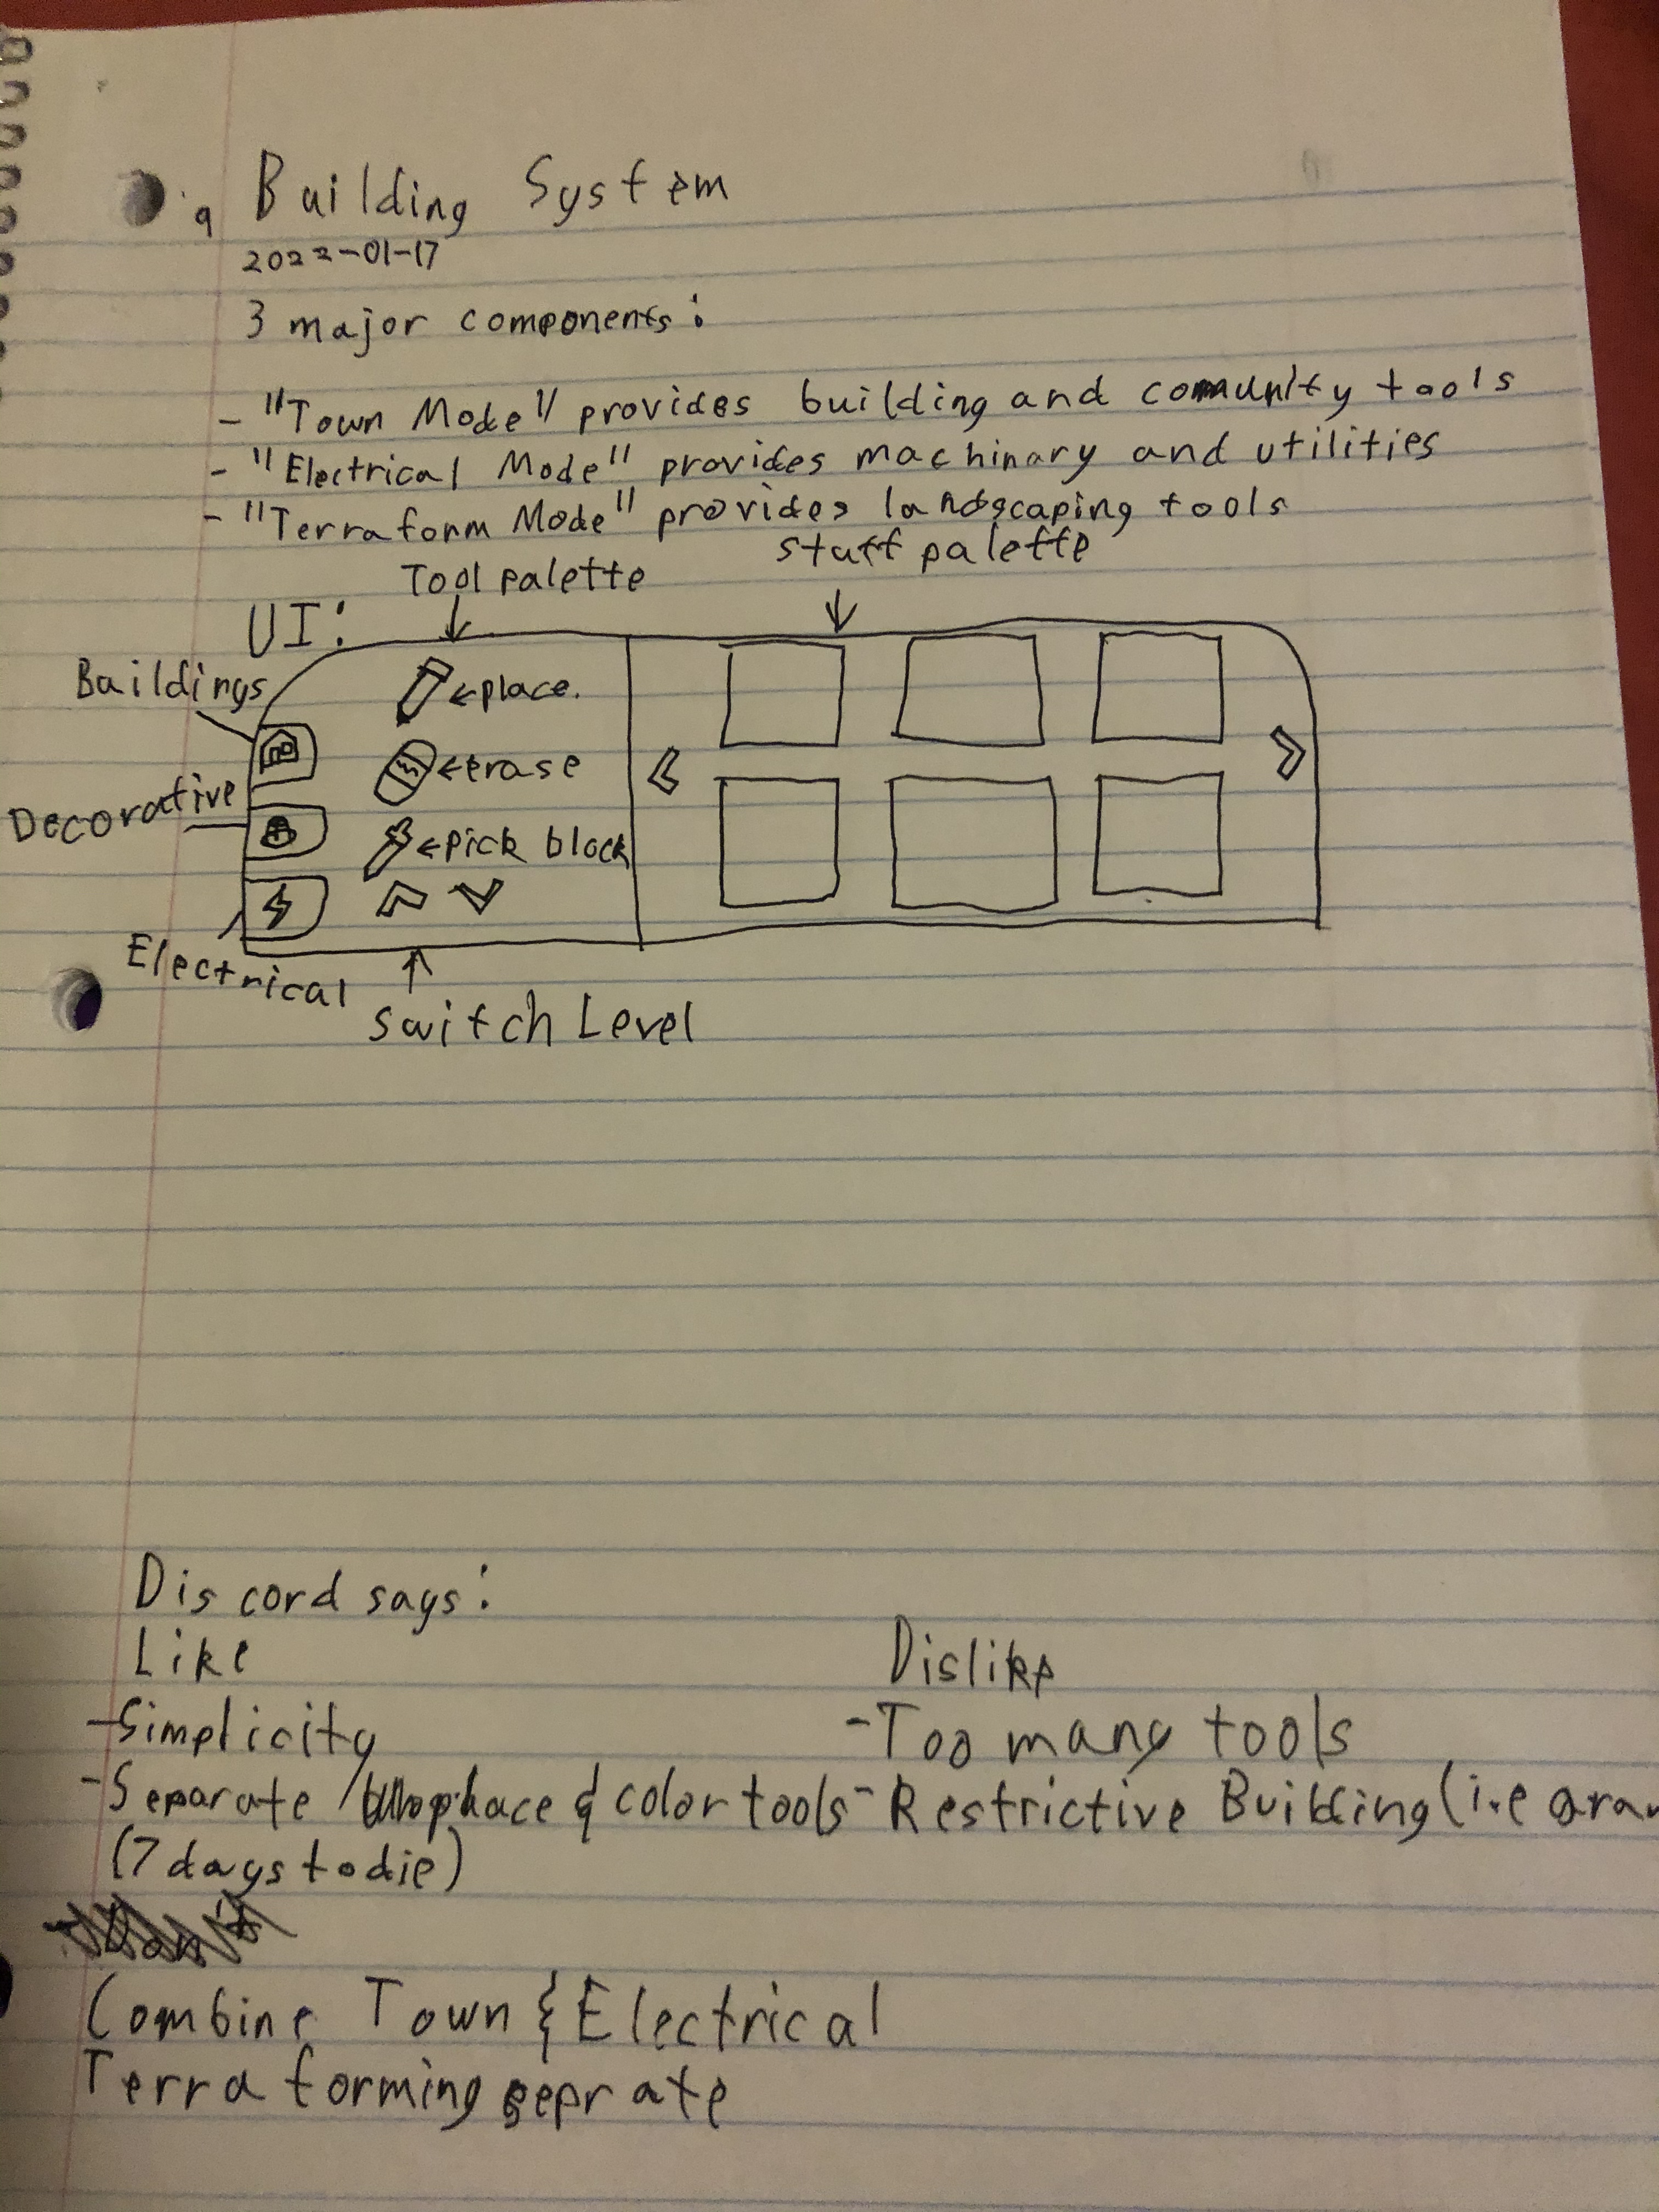 Building System
2022-01-17
3 major components:
- "Town Mode" provides building and comunity tools
- "Electrical Mode" provides machinary and utilities
- "Terraform Mode" provides landscaping tools
Tool palette
stuff palette
UI:
Buildings
Decorative
Electrical
←place.
←erase
←pick block
switch Level
Discord says:
Like
-Simplicity
-Separate & color tools
(7 days to die)
Dislike
-Too many tools
-Restrictive Building (i.e
Combine Town & Electrical
Terraforming seprate